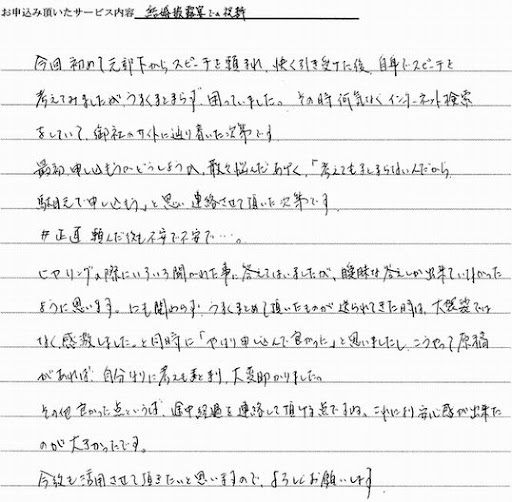 お申込み頂いたサービス内容 結婚披露宴での祝辞
今回初めて元部下からスピーチを頼まれ、快く引き受けた後、自身でスピーチを
考えてみましたが、うまくまとまらず、困っていました。その時何気なくインターネット検索
をしていて、御社のサイトに辿り着いた次第です。
最初、申し込もうかどうしようか、散々悩んだあげく、「考えてもまとまらないんだから
駄目元で申し込もう」と思い連絡させて頂いた次第です。
#正直 頼んだ後も不安で不安で…。
ヒヤリングの際にいろいろ聞かれた事に答えてはいましたが、曖昧な答えしか出来ていなかった
ように思います。にも関わらず、うまくまとめて頂いたものが送られてきた時は、大袈裟では
なく感激しました。と同時に「やはり申し込んで良かった」と思いましたし、こうやって原稿
があれば、自分なりに考えもまとまり、大変助かりました。
その他良かった点といえば、途中経過を連絡して頂ける点ですね。これにより安心感が出来た
のが大きかったです。
今後も活用させて頂きたいと思いますので、よろしくお願いします